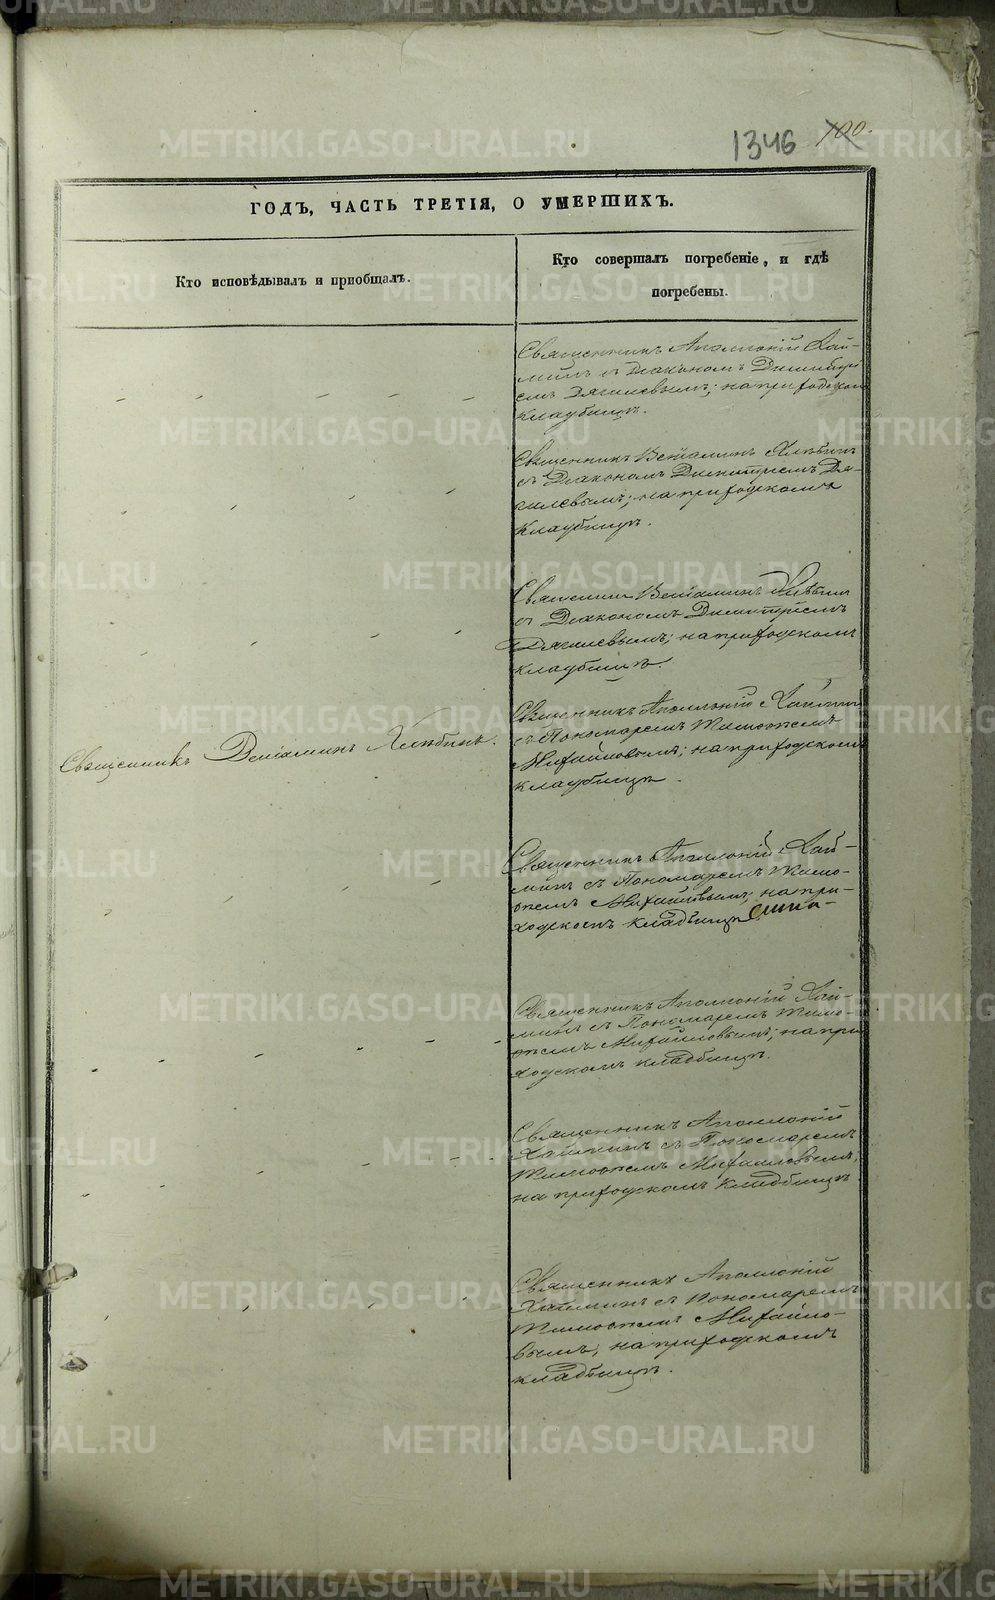 1346 100.
ГОДЪ, ЧАСТЬ ТРЕТІЯ, О УМЕРШИХЪ.
Кто исповѣдывалъ и пріобщалъ.
Кто совершалъ погребеніе, и гдѣ
погребены.
Священникъ Аполлоній Хай-
минъ съ Діакономъ Димитрі
емъ Дягилевымъ; на приходскомъ
кладбищѣ.
Священникъ Веніаминъ Хлѣбинъ
съ Діакономъ Димитріемъ Дя-
гилевымъ; на приходскомъ
кладбищѣ.
Священникъ Веніаминъ Хлѣбинъ
съ Діакономъ Димитріемъ
Дягилевымъ; на приходскомъ
кладбищѣ.
Священникъ Веніаминъ Хлѣбинъ.
Священникъ Аполлоній Хайминъ
съ Пономаремъ Тимоѳеемъ
Михайловымъ; на приходскомъ
кладбищѣ.
Священникъ Аполлоній Хай-
минъ съ Пономаремъ Тимо-
ѳеемъ Михайловымъ; на при-
ходскомъ кладбищѣ
Священникъ Аполлоній Хай-
минъ съ Пономаремъ Тимо-
ѳеемъ Михайловымъ; на при
ходскомъ кладбищѣ.
Священникъ Аполлоній
Хайминъ съ Пономаремъ
Тимоѳеемъ Михайловымъ;
на приходскомъ кладбищѣ.
Священникъ Аполлоній
Хайминъ съ Пономаремъ
Тимоѳеемъ Михайло-
вымъ; на приходскомъ
кладбищѣ.
METRIKI.GASO-URAL.RU